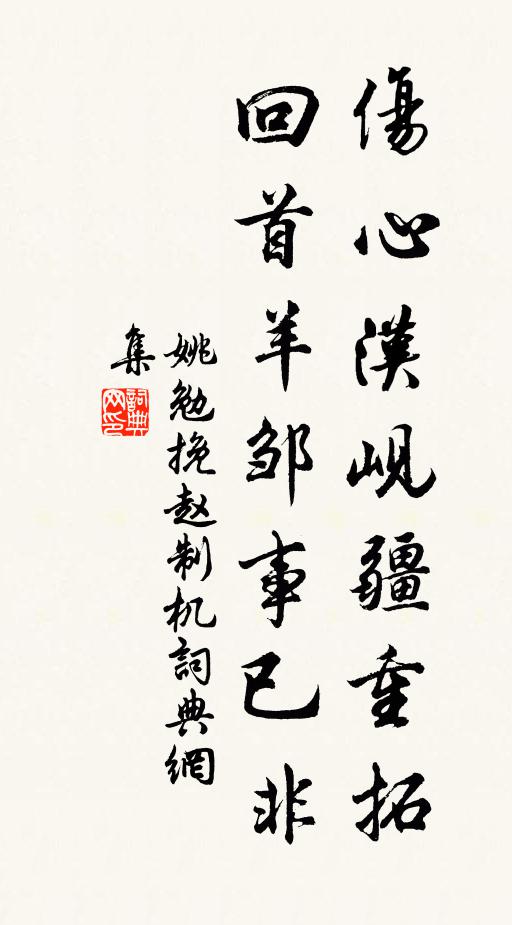 傷心漢峴疆重拓
回首羊邹事已非
姚勉挽赵制机詞典網
集
詞典
网印